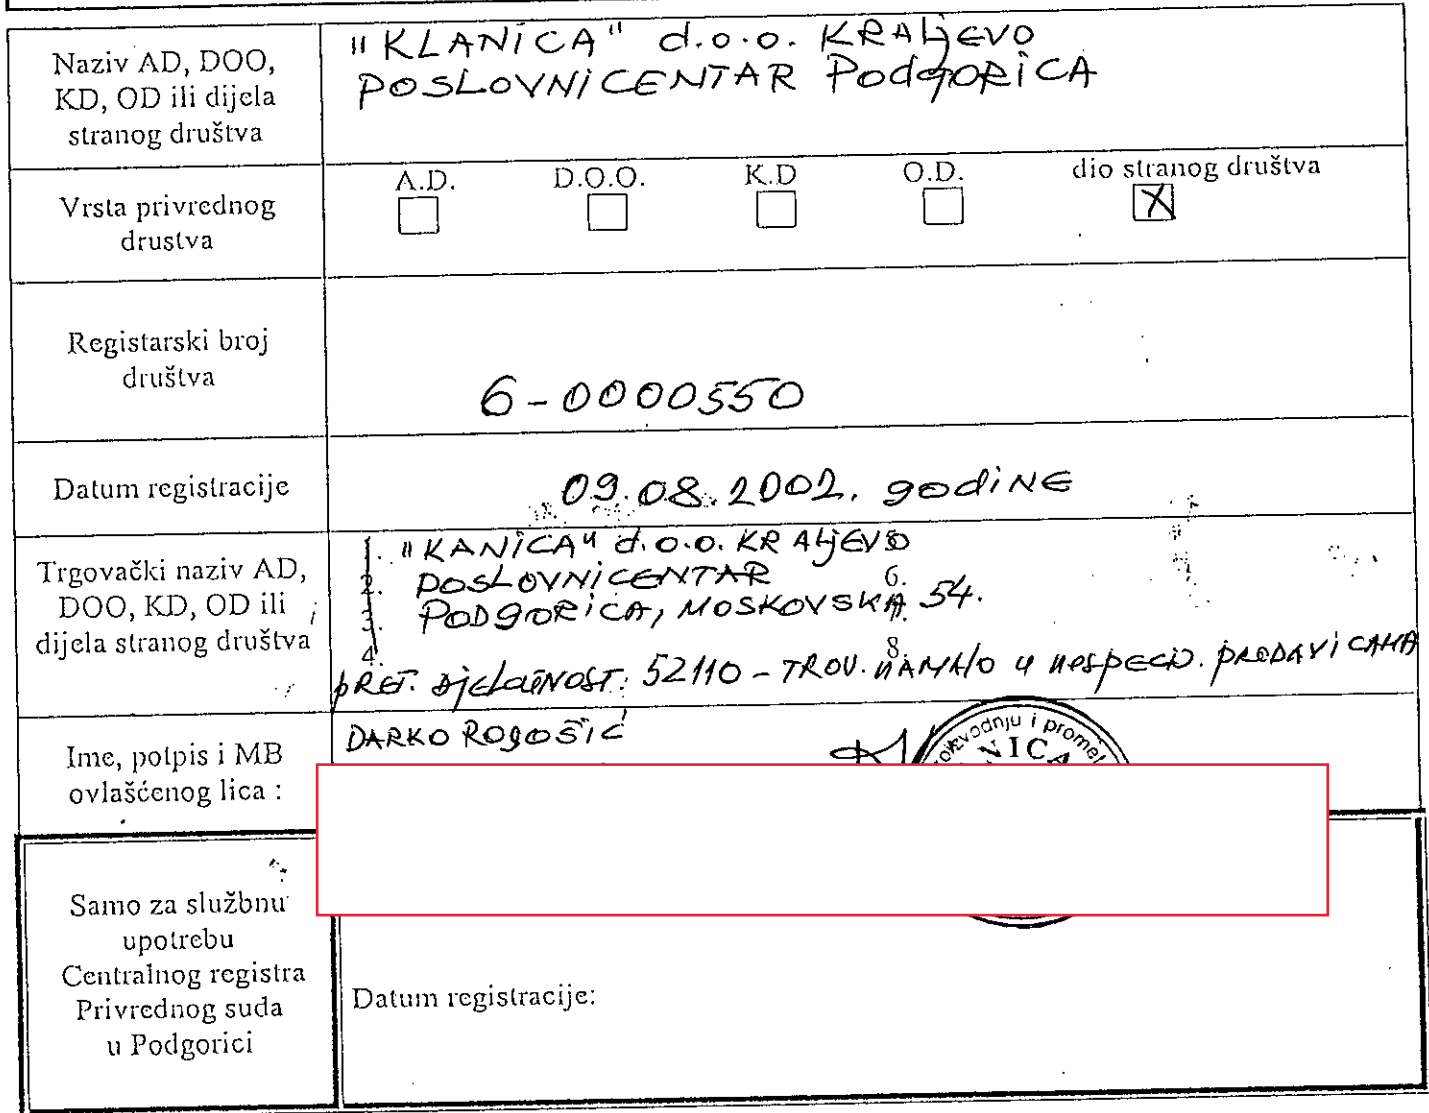 Naziv AD, DOO,
KD, OD ili dijela
stranog društva
"KLANICA" d.o.o. KRALJEVO
POSLOVNI CENTAR PodgoRiCA
Vrsta privrednog
drustva
A.D. D.O.O. K.D O.D. dio stranog društva
X
Registarski broj
društva
6-0000550
Datum registracije
09.08.2002. godiNE
Trgovački naziv AD,
DOO, KD, OD ili
dijela stranog društva
1. "KANICA" d.o.o. KRALJEVO
2. POSLOVNI CENTAR 6.
3. PODgORICA, MOSKOVSKA 54.
4. 8.
pRET. djelatNOST: 52110 - TROV. NA MALO u nespecij. pRODAVICAMA
Ime, potpis i MB
ovlašćenog lica :
DARKO ROgOŠIĆ
oizvodnju i promet
NICA
Samo za službnu
upotrebu
Centralnog registra
Privrednog suda
u Podgorici
Datum registracije: